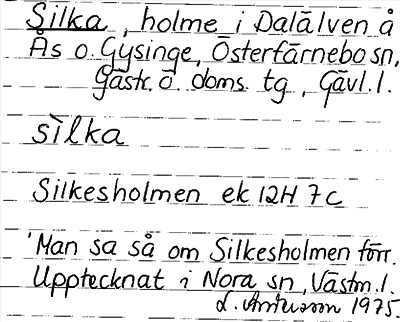 Silka, holme i Dalälven å
Ås o. Gysinge, Österfärnebo sn,
Gästr. ö. doms. tg, Gävl. l.
sìlka
Silkesholmen ek 12H 7c
'Man sa så om Silkesholmen förr.
Upptecknat i Nora sn, Västm. l.
1975.